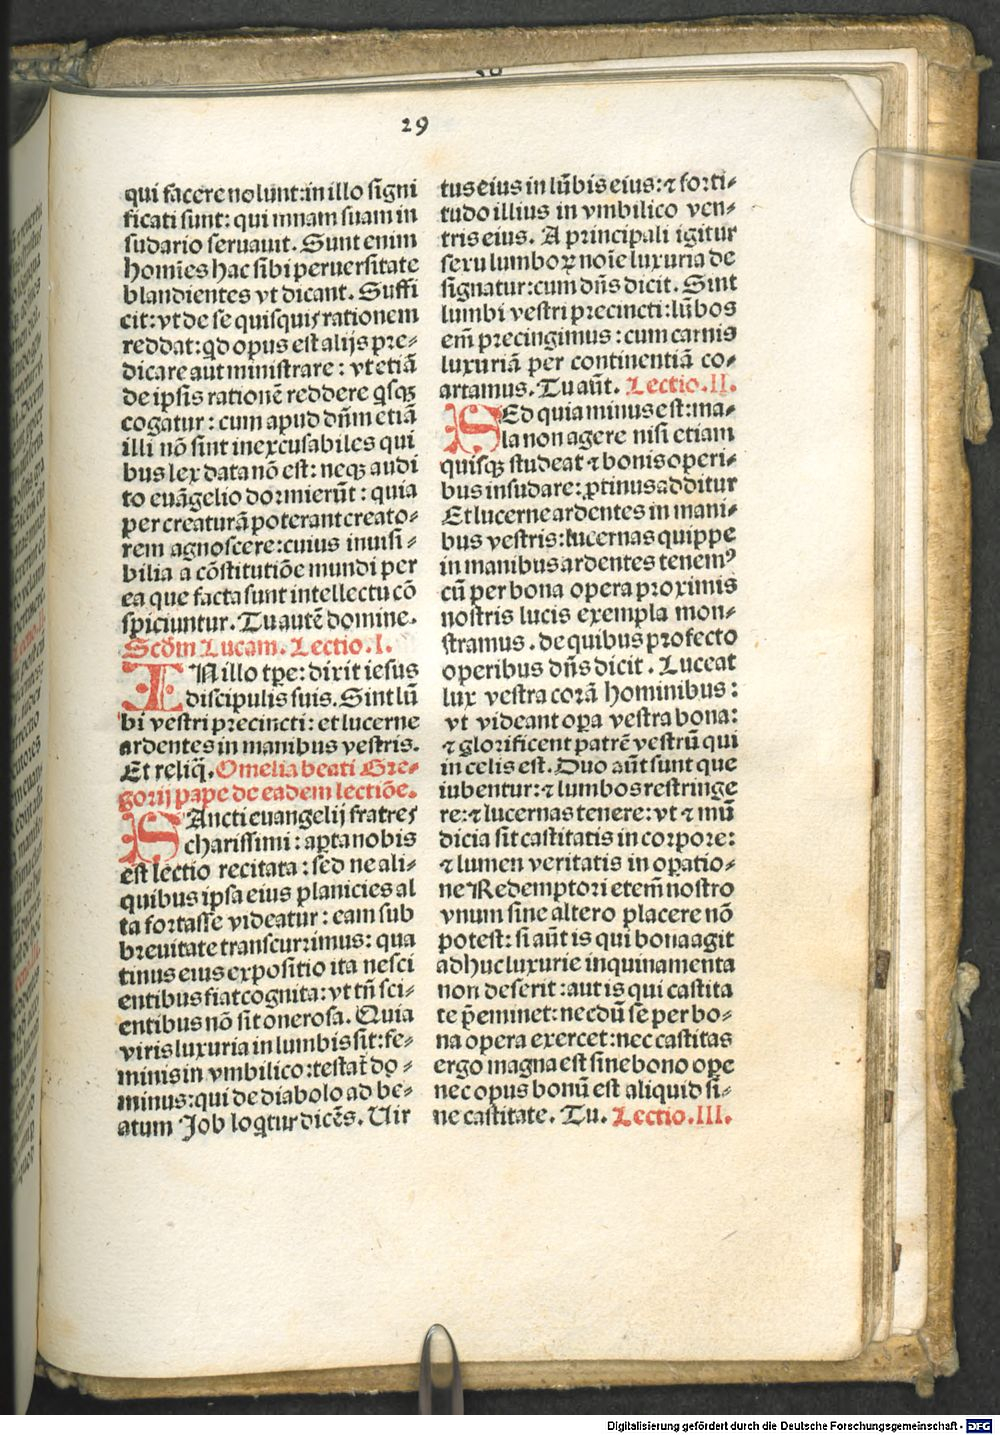 29
qui facere nolunt: in illo signi
ficati sunt: qui mnam suam in
sudario seruauit. Sunt enim
homīes hac sibi peruersitate
blandientes vt dicant. Suffi
cit: vt de se quisquis rationem
reddat: qd opus est alijs pre-
dicare aut ministrare: vt etiā
de ipsis rationē reddere qsqꝫ
cogatur: cum apud dn̄m etiā
illi nō sint inexcusabiles qui
bus lex data nō est: neqꝫ audi
to euāgelio dormierūt: quia
per creaturā poterant creato-
rem agnoscere: cuius inuisi-
bilia a cōstitutiōe mundi per
ea que facta sunt intellectu cō
spiciuntur. Tu autē domine.
Scd̄m Lucam. Lectio. I.
IN illo tpe: dixit iesus
discipulis suis. Sint lū
bi vestri precincti: et lucerne
ardentes in manibus vestris.
Et reliq̄. Omelia beati Gre-
gorij pape de eadem lectiōe.
SAncti euangelij fratres
charissimi: aꝑta nobis
est lectio recitata: sed ne ali-
quibus ipsa eius planicies al
ta fortasse videatur: eam sub
breuitate transcurrimus: qua
tinus eius expositio ita nesci
entibus fiat cognita: vt tn̄ sci-
entibus nō sit onerosa. Quia
viris luxuria in lumbis sit: fe-
minis in vmbilico: testat̄ do-
minus: qui de diabolo ad be-
atum Job loqtur dicēs. Uir
tus eius in lūbis eius: ⁊ forti-
tudo illius in vmbilico ven-
tris eius. A principali igitur
sexu lumboꝝ noīe luxuria de
signatur: cum dn̄s dicit. Sint
lumbi vestri precincti: lūbos
em̄ precingimus: cum carnis
luxuriā per continentiā co-
artamus. Tu aūt. Lectio. II.
SEd quia minus est: ma-
la non agere nisi etiam
quisqꝫ studeat ⁊ bonis operi-
bus insudare: ꝓtinus additur
Et lucerne ardentes in mani-
bus vestris: lucernas quippe
in manibus ardentes tenemꝰ
cū per bona opera proximis
nostris lucis exempla mon-
stramus. de quibus profecto
operibus dn̄s dicit. Luceat
lux vestra corā hominibus:
vt videant oꝑa vestra bona:
⁊ glorificent patrē vestrū qui
in celis est. Duo aūt sunt que
iubentur: ⁊ lumbos restringe
re: ⁊ lucernas tenere: vt ⁊ mū
dicia sit castitatis in corpore:
⁊ lumen veritatis in oꝑatio-
ne Redemptori etem̄ nostro
vnum sine altero placere nō
potest: si aūt is qui bona agit
adhuc luxurie inquinamenta
non deserit: aut is qui castita
te p̄eminet: necdū se per bo-
na opera exercet: nec castitas
ergo magna est sine bono oꝑe
nec opus bonū est aliquid si-
ne castitate. Tu. Lectio. III.
Digitalisierung gefördert durch die Deutsche Forschungsgemeinschaft - DFG